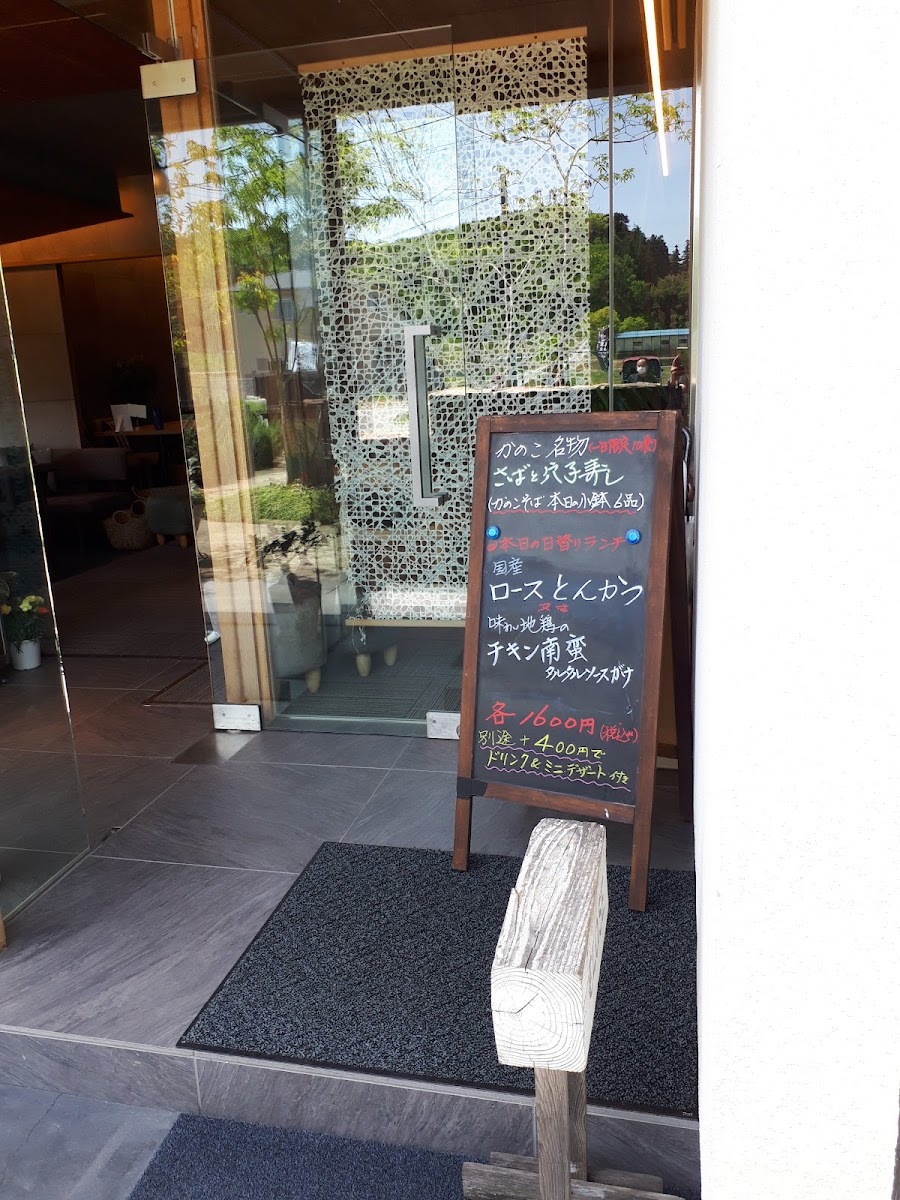 かのこ 名物(一日限定10食)
さばと穴子寿し
(かのこそば 本日の小鉢 6品)
本日の日替りランチ
国産
ロースとんかつ
又は
味わい地鶏の
チキン南蛮
タルタルソースがけ
各1600円(税込)
別途+400円で
ドリンク&ミニデザート付き